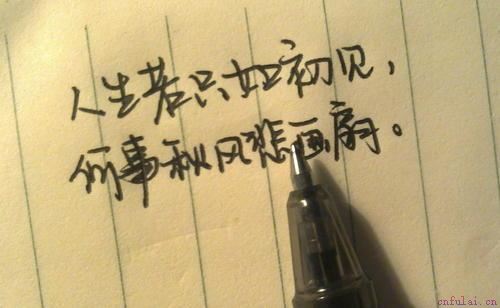 人生若只如初见，
何事秋风悲画扇。
cnfulai.cn